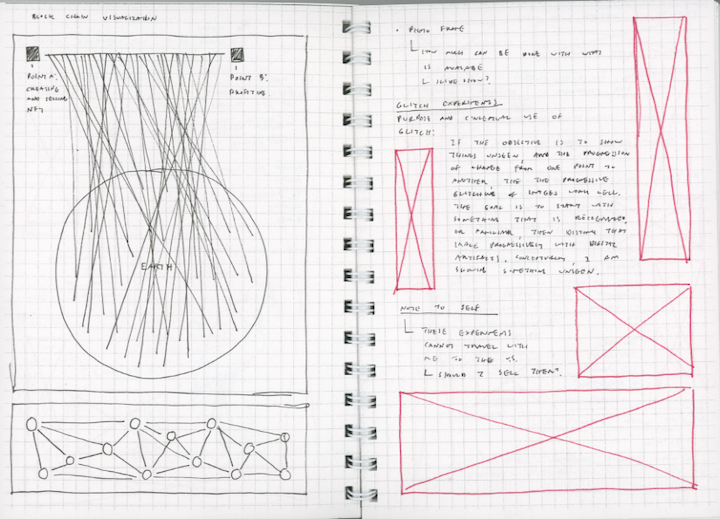 BLOCK CHAIN VISUALIZATION
POINT A:
CREATING
AND SELLING
NFT
POINT B:
PROFITING.
EARTH
• PHOTO FRAME
HOW MUCH CAN BE DONE WITH WHAT
IS AVAILABLE
SLIDE SHOW?
GLITCH EXPERIMENTS
PURPOSE AND CONCEPTUAL USE OF
GLITCH:
IF THE OBJECTIVE IS TO SHOW
THINGS UNSEEN, AND THE PROGRESSION
OF CHANGE FROM ONE POINT TO
ANOTHER, THE THE PROGRESSIVE
GLITCHING OF IMAGES WORK WELL.
THE GOAL IS TO START WITH
SOMETHING THAT IS RECOGNIZED,
OR FAMILIAR, THEN DISTORT THAT
IMAGE PROGRESSIVELY WITH DIGITAL
ARTIFACTS. CONCEPTUALLY, I AM
SHOWING SOMETHING UNSEEN.
NOTE TO SELF
THESE EXPERIMENTS
CANNOT TRAVEL WITH
ME TO THE
SHOULD I SELL THEM?